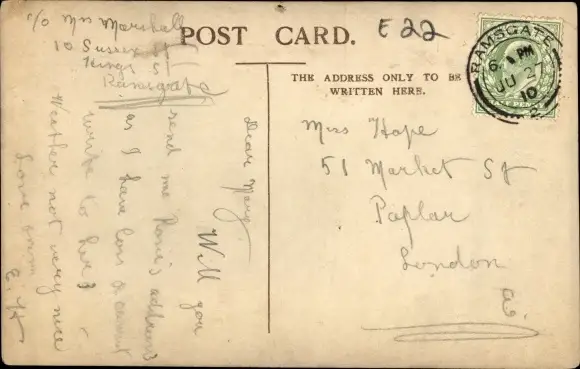 POST CARD.
E 22
THE ADDRESS ONLY TO BE
WRITTEN HERE.
RAMSGATE
6. PM
JU 27
10
2
Miss Hope
51 Market St
Paplar
London
E.
c/o Mrs Marshall
10 Sussex St
Kings St
Ramsgate
Dear Mary
Will you
send me Rose's address
as I have lors &
write to her
Weather not very nice
Love from
E. H